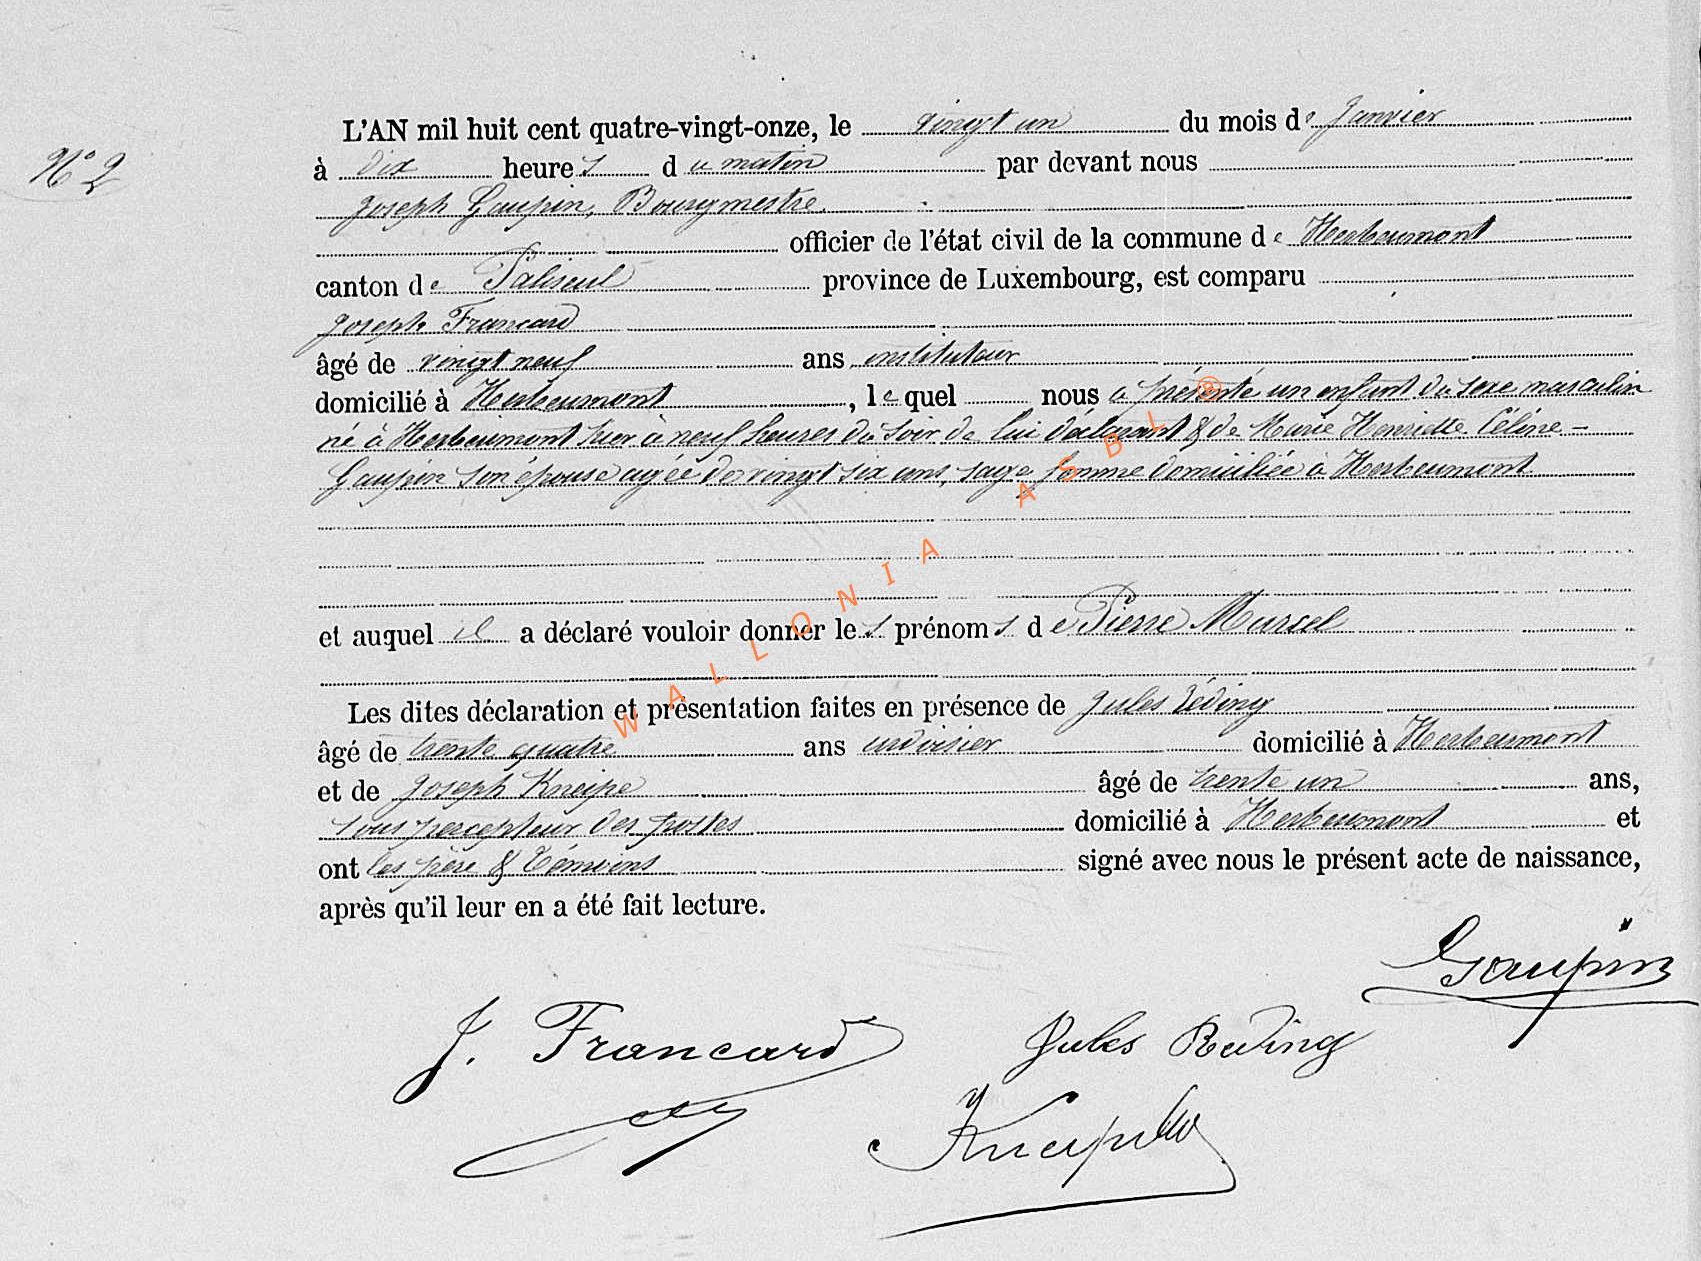 N° 2
L'AN mil huit cent quatre-vingt-onze, le vingt un du mois de Janvier
à dix heures du matin par devant nous
Joseph Gaupin, Bourgmestre
officier de l'état civil de la commune de Herbeumont
canton de Paliseul province de Luxembourg, est comparu
Joseph Francard
âgé de vingt neuf ans, instituteur
domicilié à Herbeumont, lequel nous a présenté un enfant du sexe masculin
né à Herbeumont hier à neuf heures du soir de lui déclarant & de Marie Henriette Céline -
Gaupin son épouse agée de vingt six ans, sage femme domiciliée à Herbeumont
et auquel il a déclaré vouloir donner les prénoms de Pierre Marcel
Les dites déclaration et présentation faites en présence de Jules Réding
âgé de trente quatre ans ardoisier domicilié à Herbeumont
et de Joseph Kneipe âgé de trente un ans,
sous percepteur des postes domicilié à Herbeumont et
ont les père & témoins signé avec nous le présent acte de naissance,
après qu'il leur en a été fait lecture.
Gaupin
J. Francard Jules Reding
WALLONIA ASBL ®